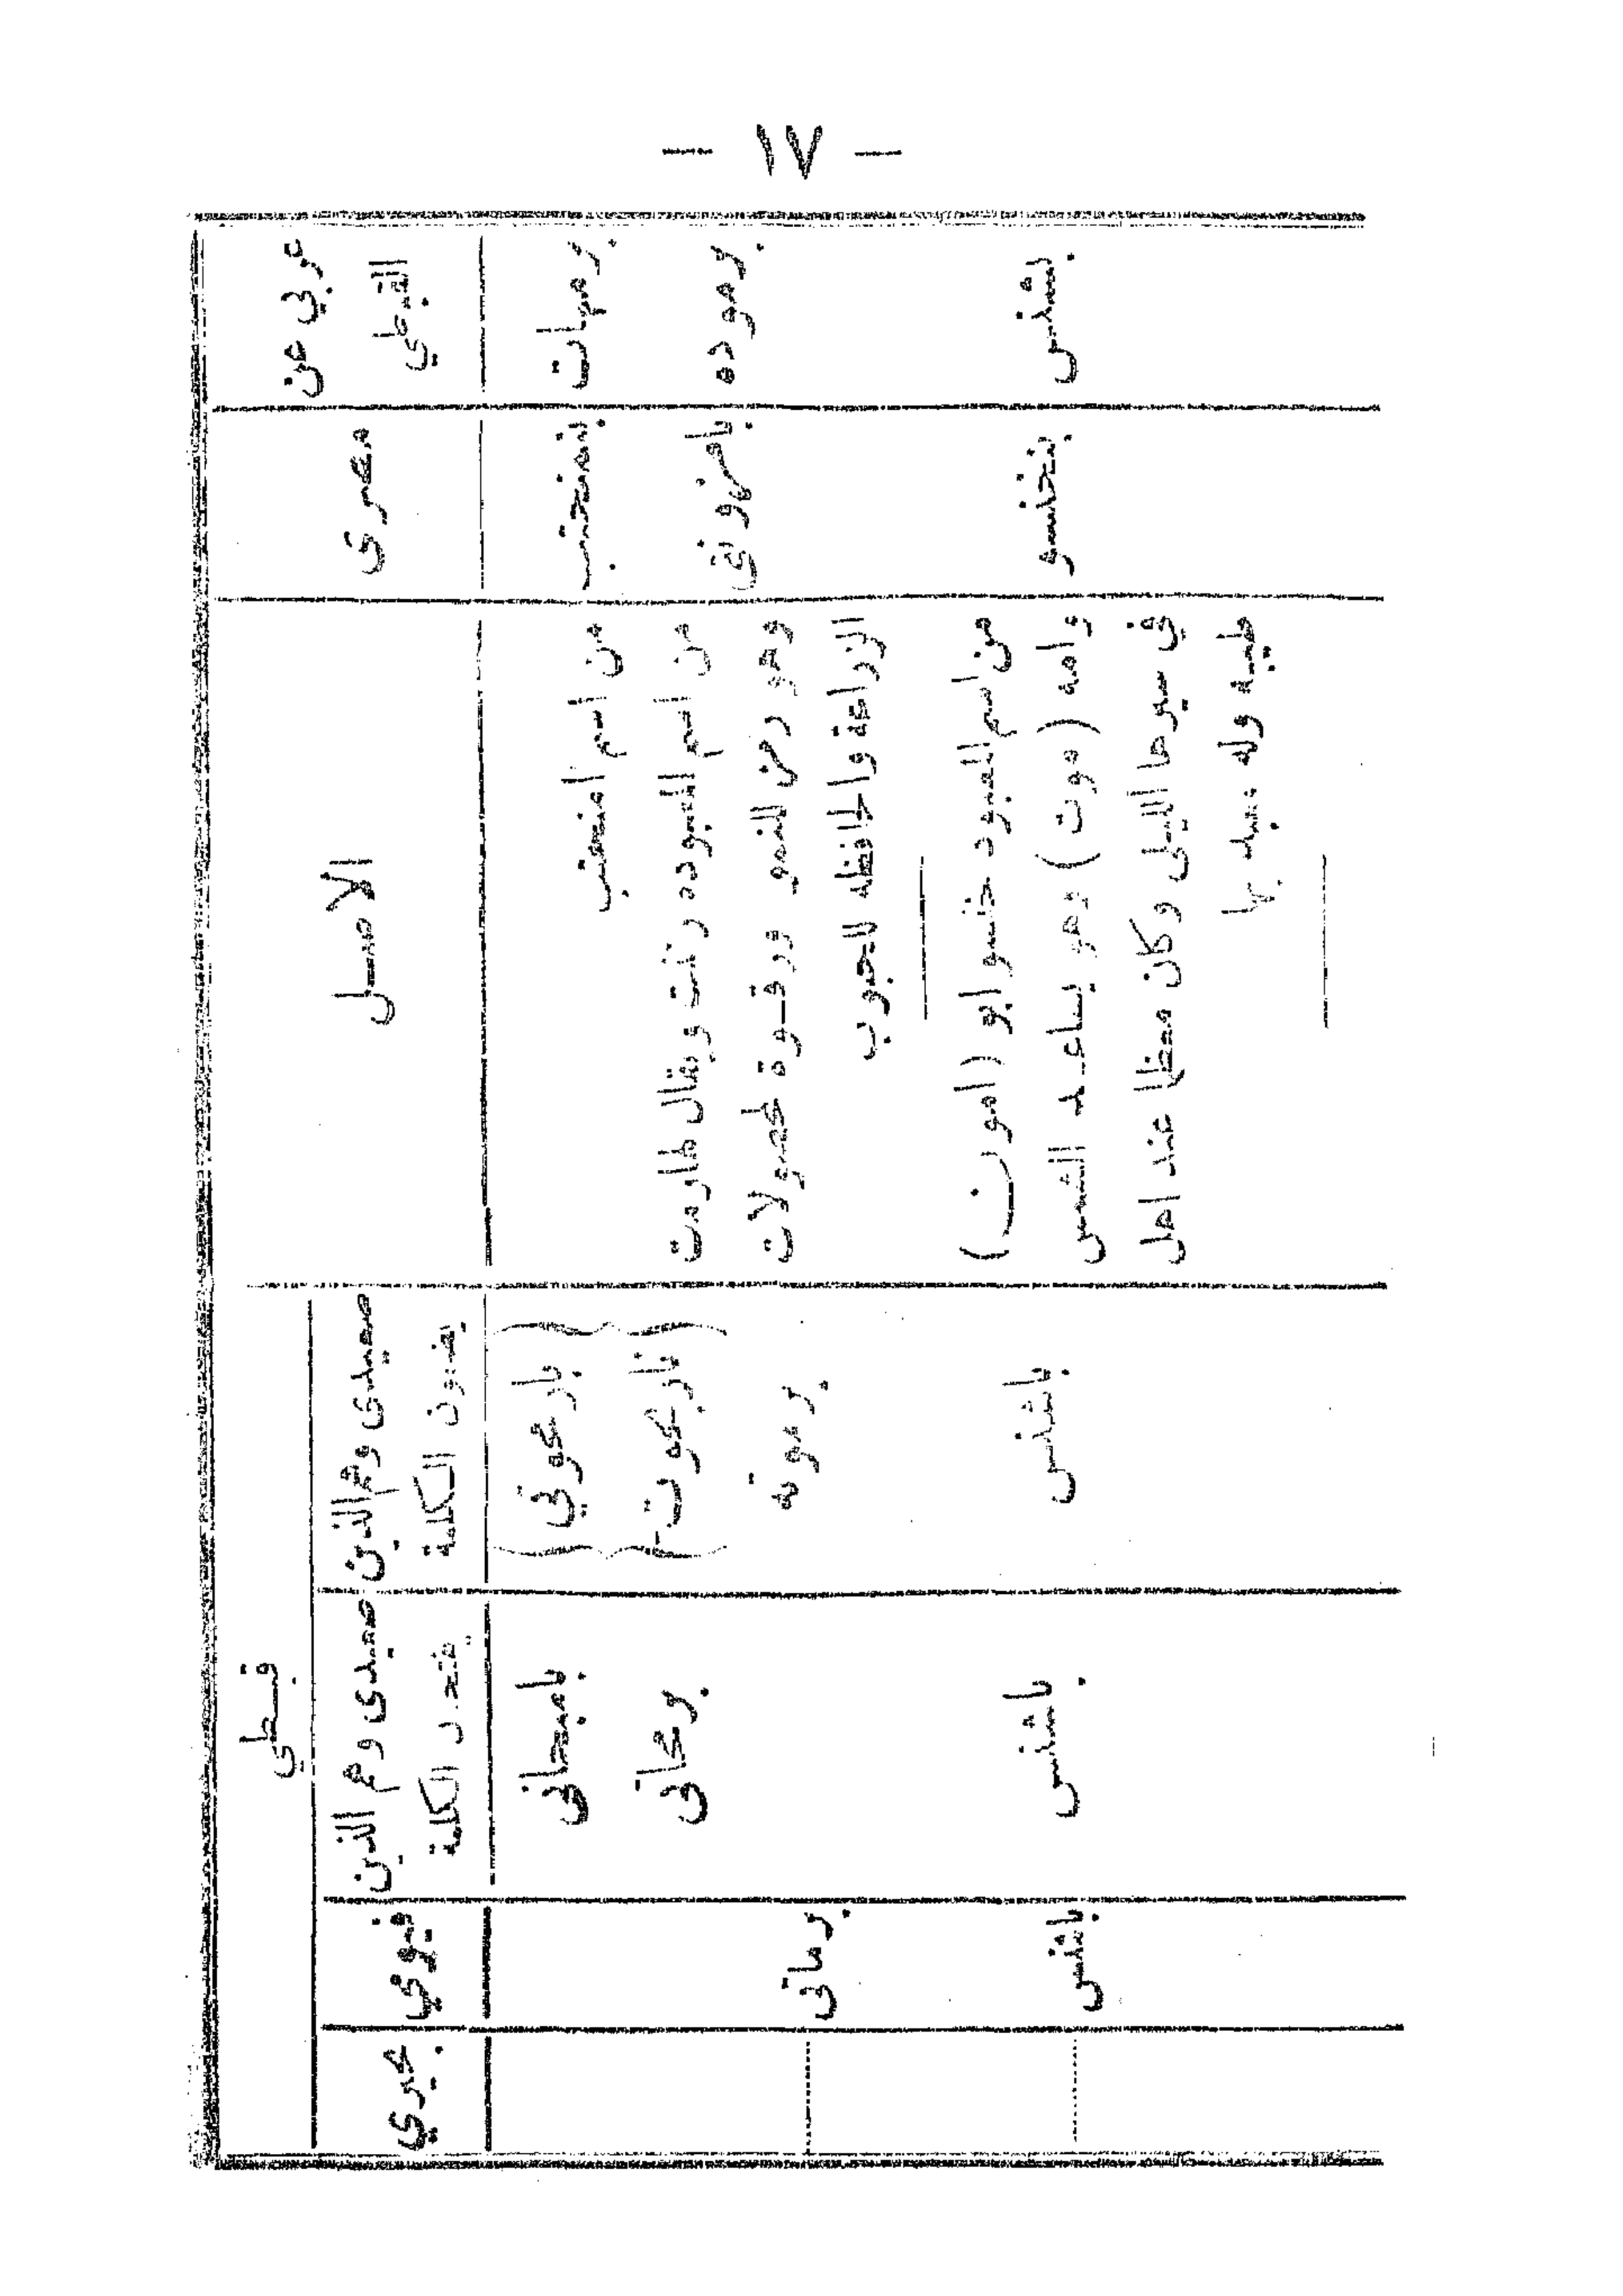 — ١٧ —
عربي عن
القبطي
مصرى
الاصل
قبطي
صعيدى وهم الذين
يضمون الكلمة
صعيدى وهم الذين
يفتحون الكلمة
فيومي
بحيري
برمهات
بنمنحتب
من اسم امنحتب
بارمحوتي
بامبحاتى
برموده
من اسم المعبوده رننت ويقال لها رمت
وهو رمز للنمو وقوة المحصولات
الزراعة والحافظه للحبوب
برموته
برمحاتى
برماتى
بشنس
بنخنسو
من اسم المعبود خنسو ابو (امون)
وامه (موت) وهو يساعد الشمس
في سيرها الليلى وكان معظما عند اهل
طيبه وله معبد بها
باشنس
باشنس
باشنس